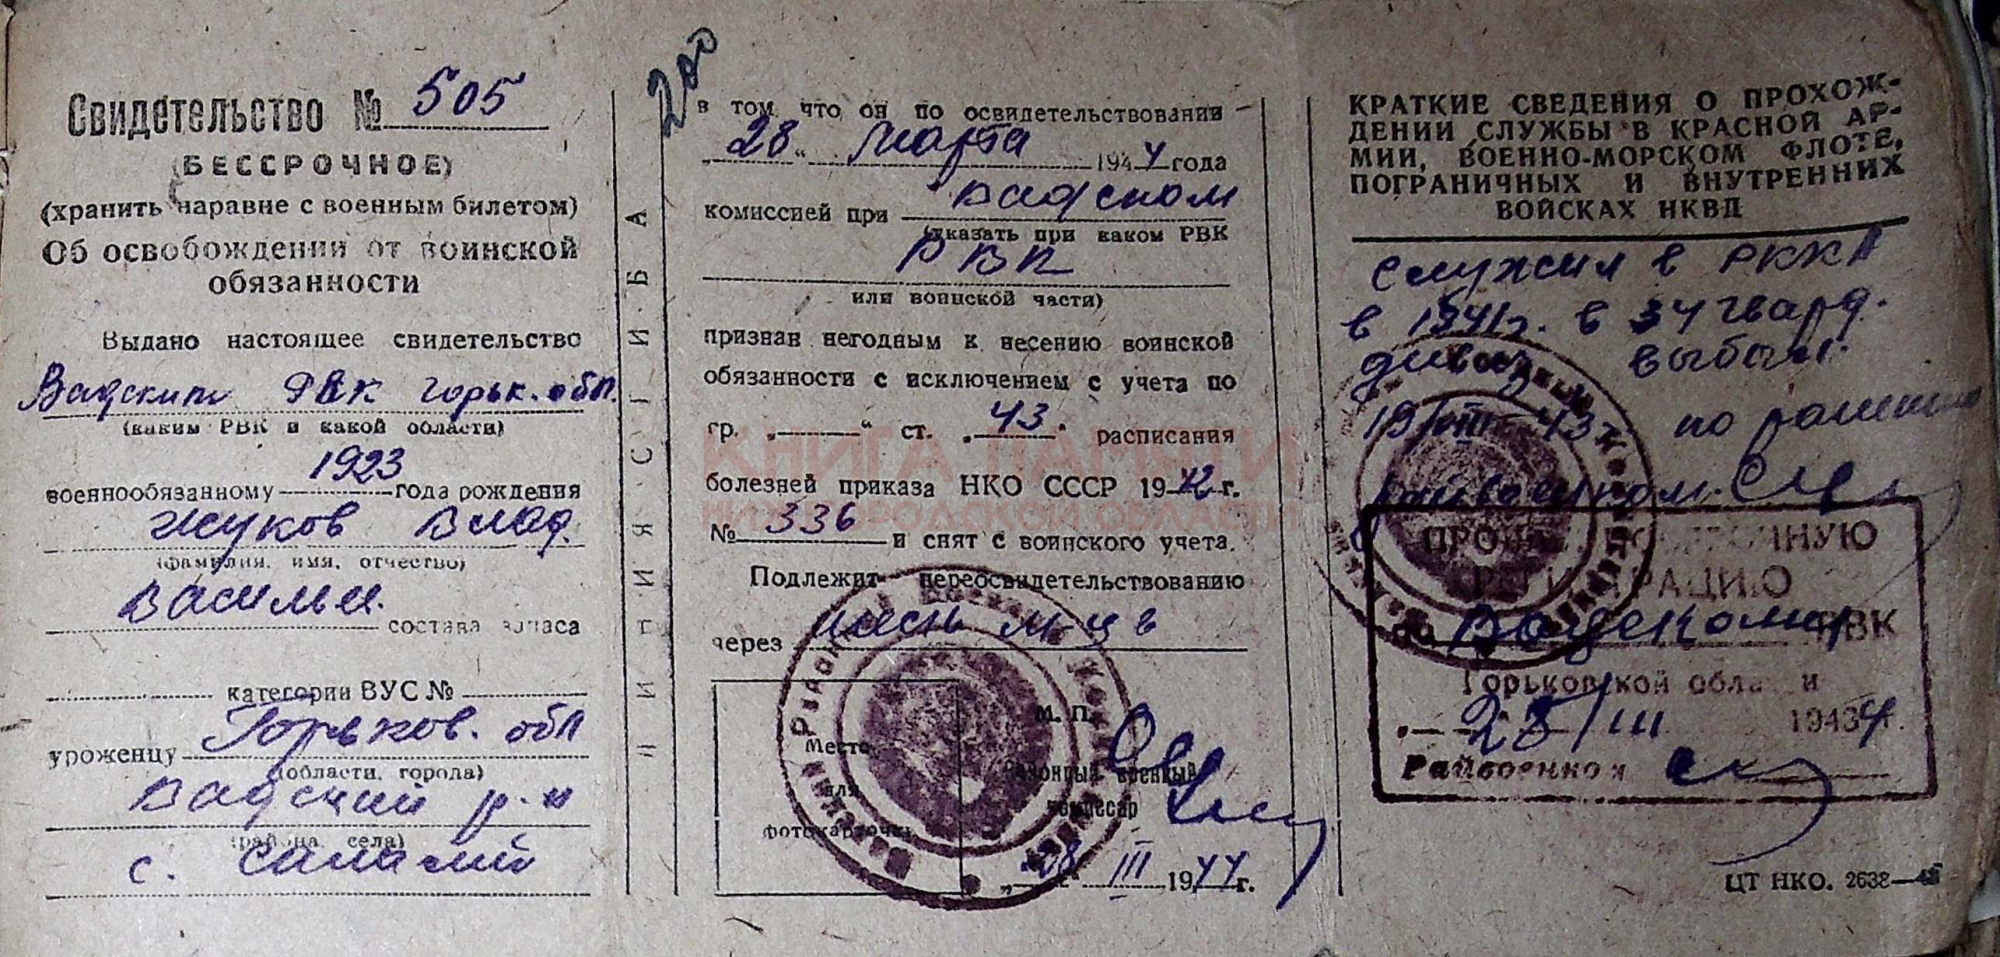 Свидетельство № 505
(БЕССРОЧНОЕ)
(хранить наравне с военным билетом)
Об освобождении от воинской
обязанности
Выдано настоящее свидетельство
Вадским РВК Горьк. обл.
(каким РВК и какой области)
военнообязанному 1923 года рождения
Жуков Влад.
(фамилия, имя, отчество)
Васильи.
состава запаса
категории ВУС №
уроженцу Горьков. обл
(области, города)
Вадский р-н
(района, села)
с.
ЛИНИЯ СГИБА
200
в том, что он по освидетельствовании
„28“ Марта 1944 года
комиссией при Вадском
(указать при каком РВК
РВК
или воинской части)
признан негодным к несению воинской
обязанности с исключением с учета по
гр. „—“ ст. „43“ расписания
болезней приказа НКО СССР 1942 г.
№ 336 и снят с воинского учета.
Подлежит переосвидетельствованию
через шесть м-цев
М. П.
Место
для
фотокарточки
Районный военный
комиссар
„28“ III 1944 г.
КНИГА ПАМЯТИ
НИЖЕГОРОДСКОЙ ОБЛАСТИ
КРАТКИЕ СВЕДЕНИЯ О ПРОХОЖ-
ДЕНИИ СЛУЖБЫ В КРАСНОЙ АР-
МИИ, ВОЕННО-МОРСКОМ ФЛОТЕ,
ПОГРАНИЧНЫХ И ВНУТРЕННИХ
ВОЙСКАХ НКВД
Служил в РККА
в 1941г. в 34 гвард.
дивиз. выбыл.
19/VIII 43 по ранению
райвоенком.
ПРОШЕЛ ПОВТОРНУЮ
РЕГИСТРАЦИЮ
РВК
Горьковской области
„28/III 1944 г.
Райвоенком
ЦТ НКО. 2638—